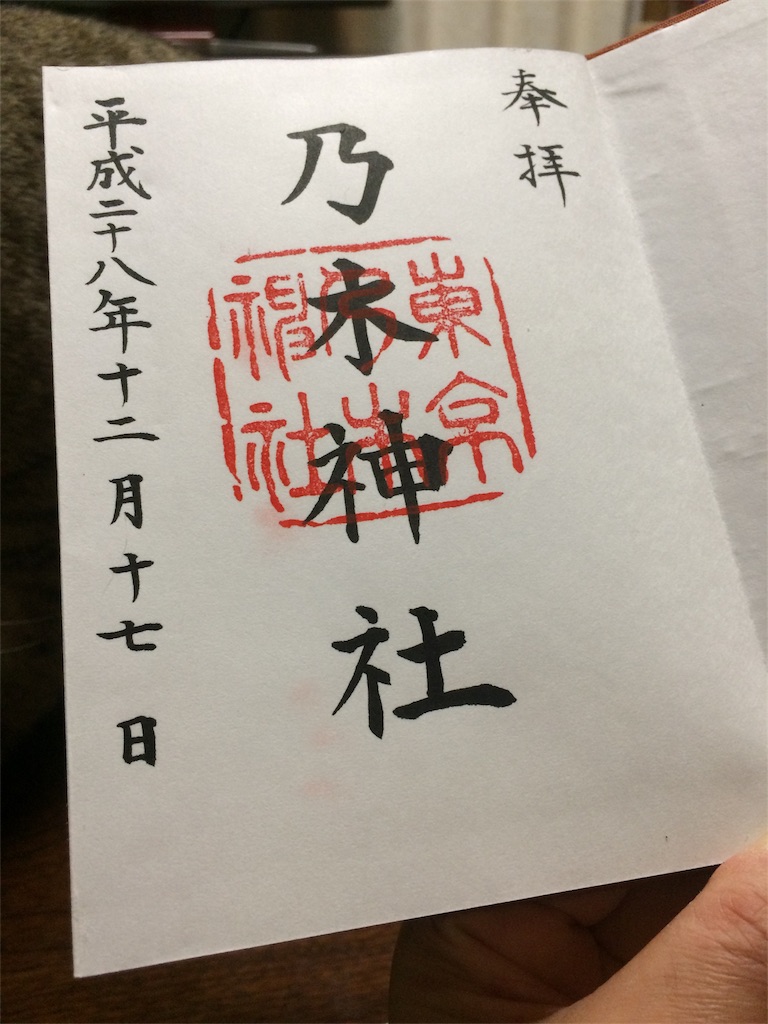 奉拝
乃木神社
東京
神社
平成二十八年十二月十七日